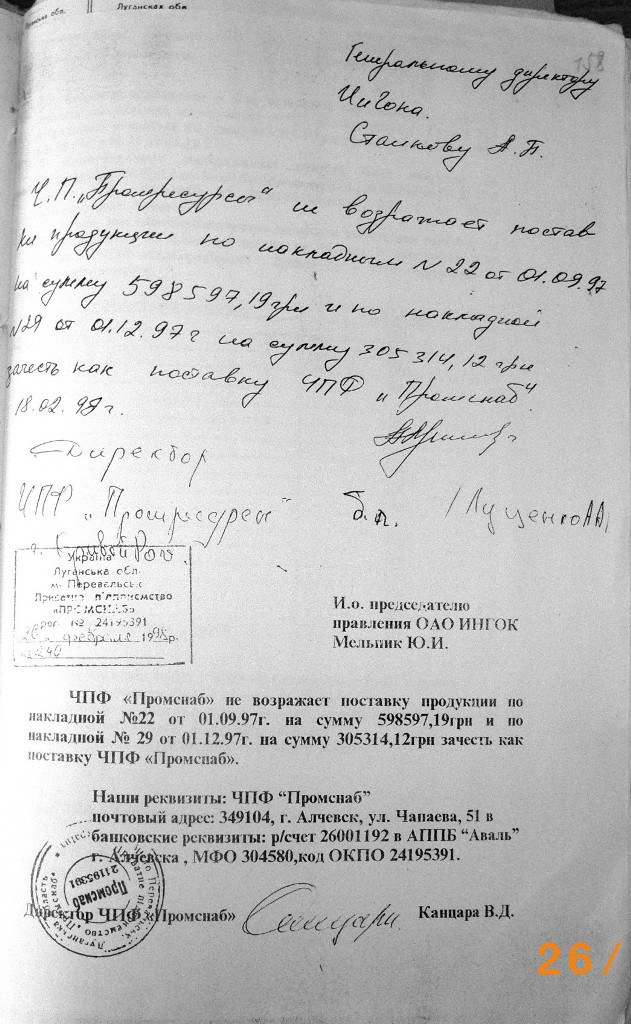 Луганская обл.
158
Генеральному директору
ИнГОКа.
Станкову А.П.
Ч.П. „Промресурсы" не возражает постав
ки продукции по накладным N 22 от 01.09.97
на сумму 598597,19грн и по накладной
N29 от 01.12.97г на сумму 305314,12 грн
зачесть как поставку ЧПФ „Промснаб"
18.02.98г.
Директор
ЧПФ „Промресурсы" /Луценко А.А/
г. Кривой Рог.
Україна
Луганська обл.
м. Перевальськ
Приватне підприємство
«ПРОМСНАБ»
24195391
26 февраля 1998р.
240
И.о. председателю
правления ОАО ИНГОК
Мельник Ю.И.
ЧПФ «Промснаб» не возражает поставку продукции по
накладной №22 от 01.09.97г. на сумму 598597,19грн и по
накладной № 29 от 01.12.97г. на сумму 305314,12грн зачесть как
поставку ЧПФ «Промснаб».
Наши реквизиты: ЧПФ “Промснаб”
почтовый адрес: 349104, г. Алчевск, ул. Чапаева, 51 в
банковские реквизиты: р/счет 26001192 в АППБ “Аваль”
г. Алчевска , МФО 304580,код ОКПО 24195391.
Промснаб
Директор ЧПФ «Промснаб» Канцара В.Д.
26/